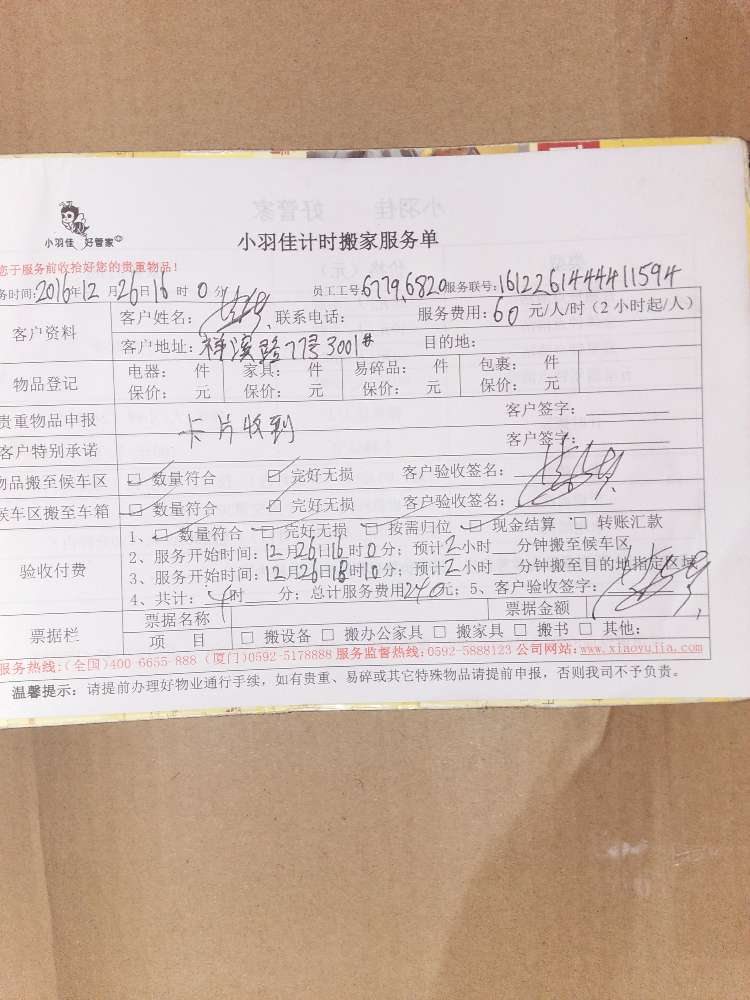 小羽佳 好管家
小羽佳计时搬家服务单
您于服务前收拾好您的贵重物品！
务时间:2016年12月26日16时0分 员工工号6779,6820服务联号:1612261444411594
客户资料 客户姓名: 联系电话: 服务费用:60元/人/时(2小时起/人)
客户地址:祥溪路77号3001# 目的地:
物品登记 电器: 件 家具: 件 易碎品: 件 包裹: 件
保价: 元 保价: 元 保价: 元 保价: 元
贵重物品申报 客户签字:
客户特别承诺 卡片收到 客户签字:
物品搬至候车区 □ 数量符合 □ 完好无损 客户验收签名:
候车区搬至车箱 □ 数量符合 □ 完好无损 客户验收签名:
验收付费 1、□ 数量符合 □ 完好无损 □ 按需归位 □ 现金结算 □ 转账汇款
2、服务开始时间:12月26日16时0分；预计2小时___分钟搬至候车区
3、服务开始时间:12月26日18时10分；预计2小时___分钟搬至目的地指定区域
4、共计:4时____分；总计服务费用240元；5、客户验收签字:
票据栏 票据名称 票据金额
项 目 □ 搬设备 □ 搬办公家具 □ 搬家具 □ 搬书 □ 其他:
服务热线:(全国)400-6655-888 (厦门)0592-5178888 服务监督热线:0592-5888123 公司网站:www.xiaoyujia.com
温馨提示: 请提前办理好物业通行手续，如有贵重、易碎或其它特殊物品请提前申报，否则我司不予负责。